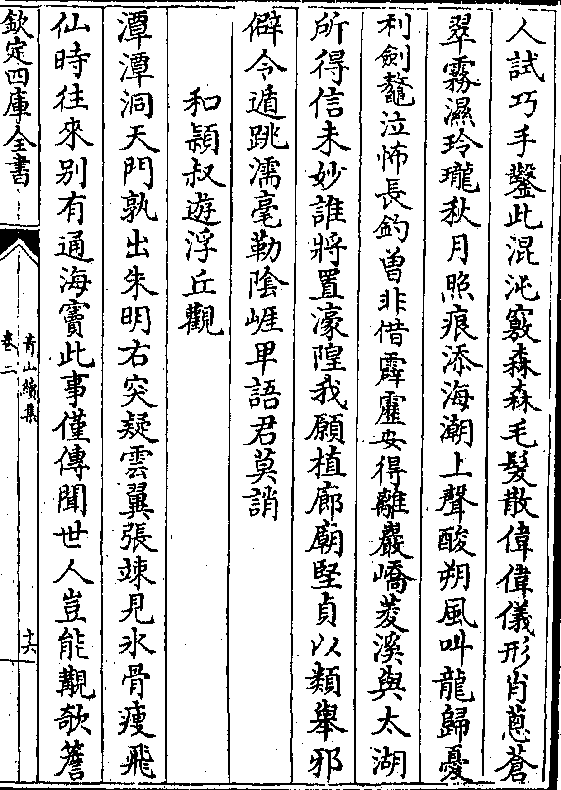 人試巧手鑿此混沌竅森森毛髮散偉偉儀形肖蔥蒼
翠霧濕玲瓏秋月照痕添海潮上聲酸朔風叫龍歸憂
利劍鼇泣怖長釣曾非借霹靂安得離巖嶠菱溪與太湖
所得信未妙誰將置濠隍我願植廊廟堅貞以類舉邪
僻令遁跳濡毫勒陰崕甲語君莫誚
和潁叔遊浮丘觀
潭潭洞天門孰出朱明右突疑雲翼張竦見氷骨瘦飛
仙時往來别有通海竇此事僅傳聞世人豈能觀欹簷
欽定四庫全書
青山續集
卷二
十六